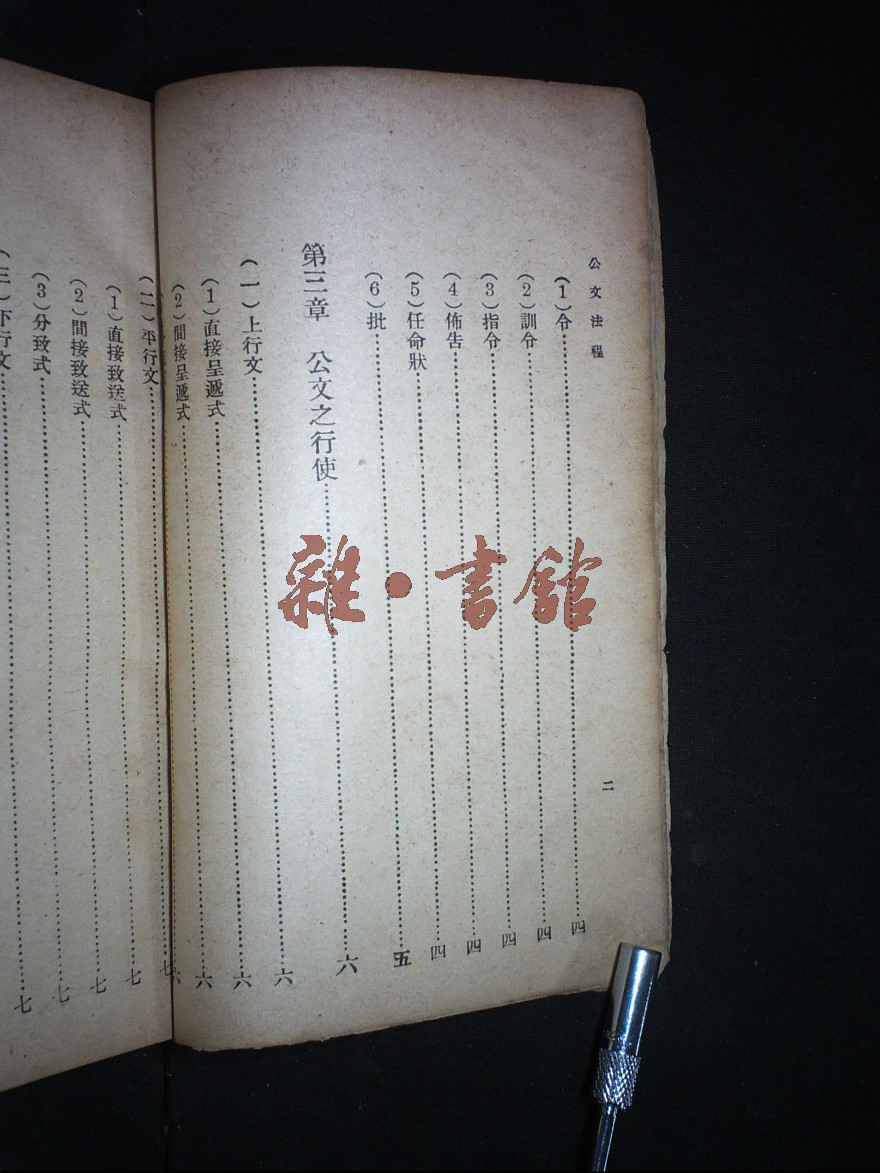 公文法程
二
(1)令……四
(2)訓令……四
(3)指令……四
(4)佈告……四
(5)任命狀……四
(6)批……五
第三章　公文之行使……六
(一)上行文……六
(1)直接呈遞式……六
(2)間接呈遞式……六
六
(二)平行文……七
(1)直接致送式……七
(2)間接致送式……七
(3)分致式……七
(三)下行文……七
雜·書館